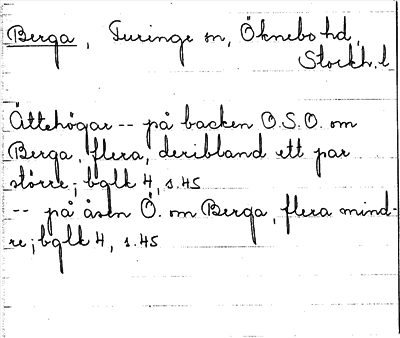 Berga, Turinge sn, Öknebo hd,
Stockh. l
Ättehögar -- på backen O.S.O. om
Berga, flera, deribland ett par
större; bglk 4, s. 45
-- på åsen Ö. om Berga, flera mind-
re; bglk 4, s. 45